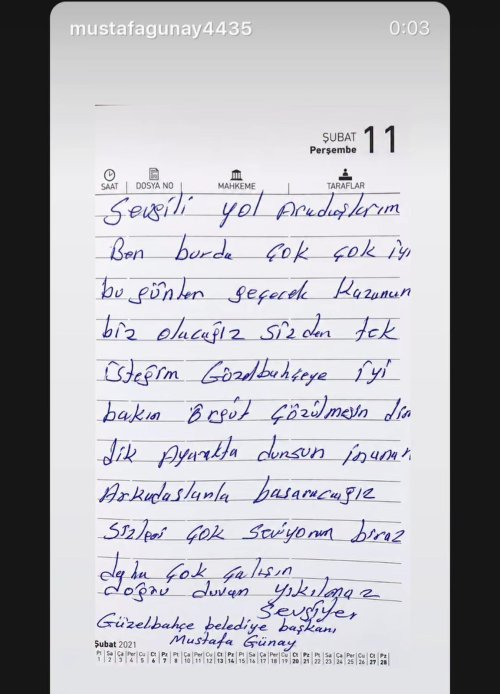 mustafagunay4435 0:03
ŞUBAT 11
Perşembe
SAAT DOSYA NO MAHKEME TARAFLAR
Sevgili yol Arkadaşlarım
Ben burda çok çok iyi
bu günler geçecek Kazanan
biz olacağız sizden tek
isteğim Güzelbahçeye iyi
bakın Örgüt Çözülmesin dim
dik Ayakta dursun inanan
Arkadaşlarla başaracağız
Sizleri çok Seviyorum biraz
daha çok çalışın
doğru duvar yıkılmaz
Sevgiler
Güzelbahçe belediye başkanı
Mustafa Günay
Şubat 2021
Pt Sa Ça Per Cu Ct Pz Pt Sa Ça Per Cu Ct Pz Pt Sa Ça Per Cu Ct Pz Pt Sa Ça Per Cu Ct Pz
1 2 3 4 5 6 7 8 9 10 11 12 13 14 15 16 17 18 19 20 21 22 23 24 25 26 27 28